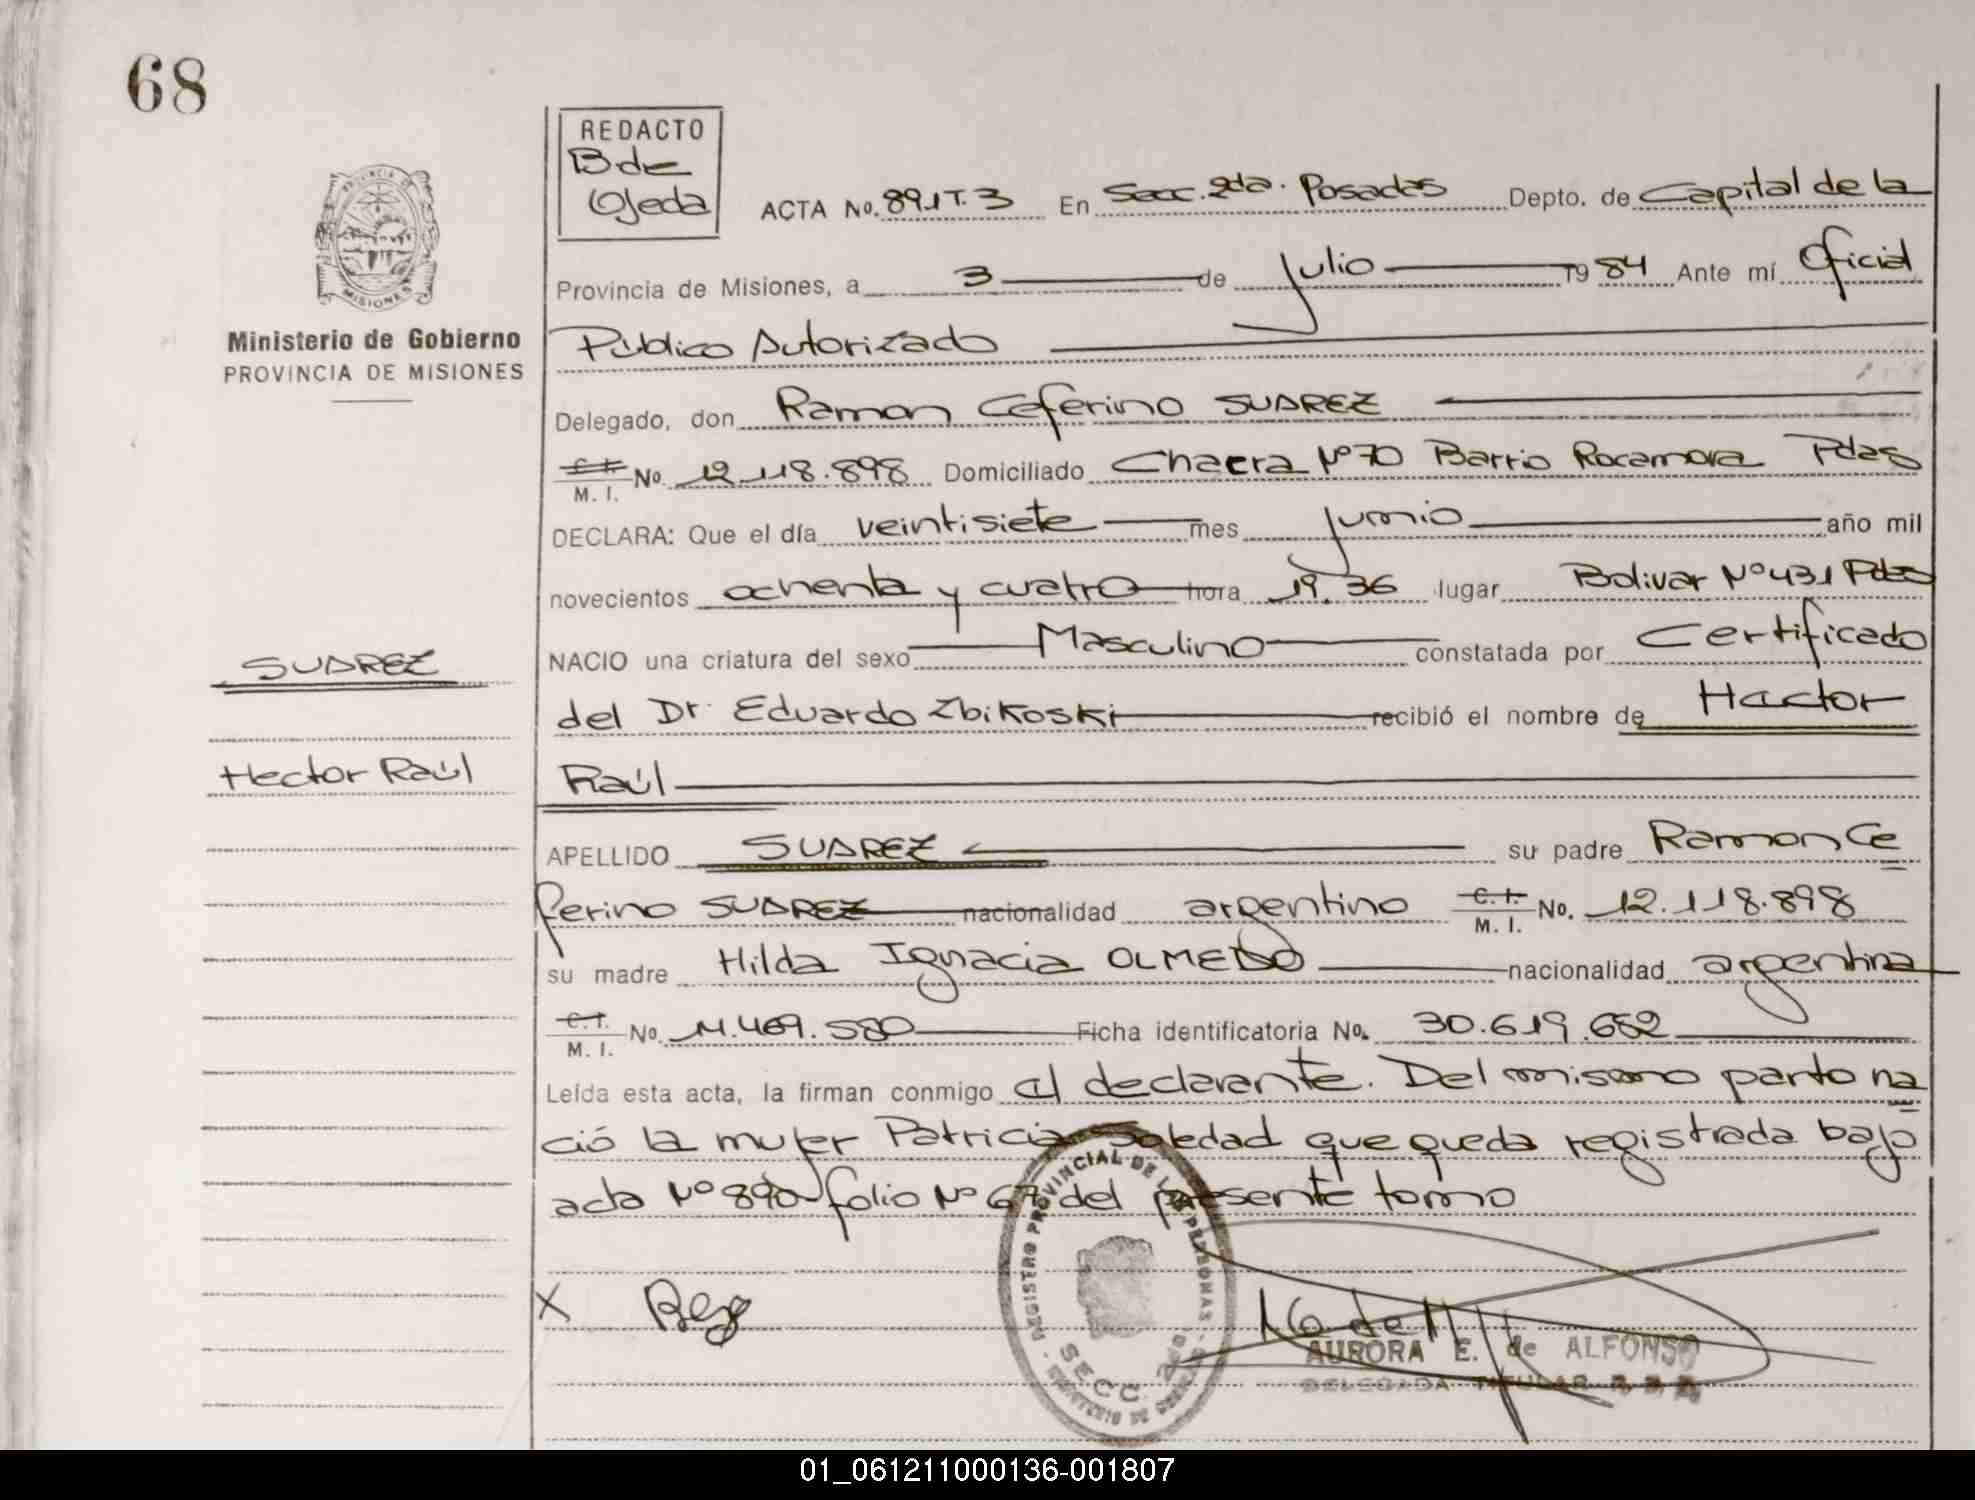 68
REDACTO
B de
Ojeda
ACTA No. 891 T. 3 En Secc. 2da. Posadas Depto. de Capital de la
Provincia de Misiones, a 3 de Julio 19 84 Ante mí Oficial
Público Autorizado
PROVINCIA DE
MISIONES
Ministerio de Gobierno
PROVINCIA DE MISIONES
Delegado, don Ramon Ceferino SUAREZ
C. I.
M. I. No. 12.118.898 Domiciliado Chacra Nº 70 Barrio Rocamora Pdas
DECLARA: Que el día veintisiete mes junio año mil
novecientos ochenta y cuatro hora 19.36 lugar Bolivar Nº 431 Pdas
NACIO una criatura del sexo Masculino constatada por Certificado
del Dr. Eduardo Zbikoski recibió el nombre de Hector
Raúl
SUAREZ
Hector Raúl
APELLIDO SUAREZ su padre Ramon Ce
ferino SUAREZ nacionalidad argentino C. I.
M. I. No. 12.118.898
su madre Hilda Ignacia OLMEDO nacionalidad argentina
C. I.
M. I. No. 11.469.580 Ficha identificatoria No. 30.619.652
Leída esta acta, la firman conmigo el declarante. Del mismo parto na
ció la mujer Patricia Soledad que queda registrada bajo
acta Nº 890 folio Nº 67 del presente tomo
REGISTRO PROVINCIAL DE LAS PERSONAS
SECC. 2da
X
AURORA E. de ALFONSO
DELEGADA TITULAR R. P. P.
01_061211000136-001807